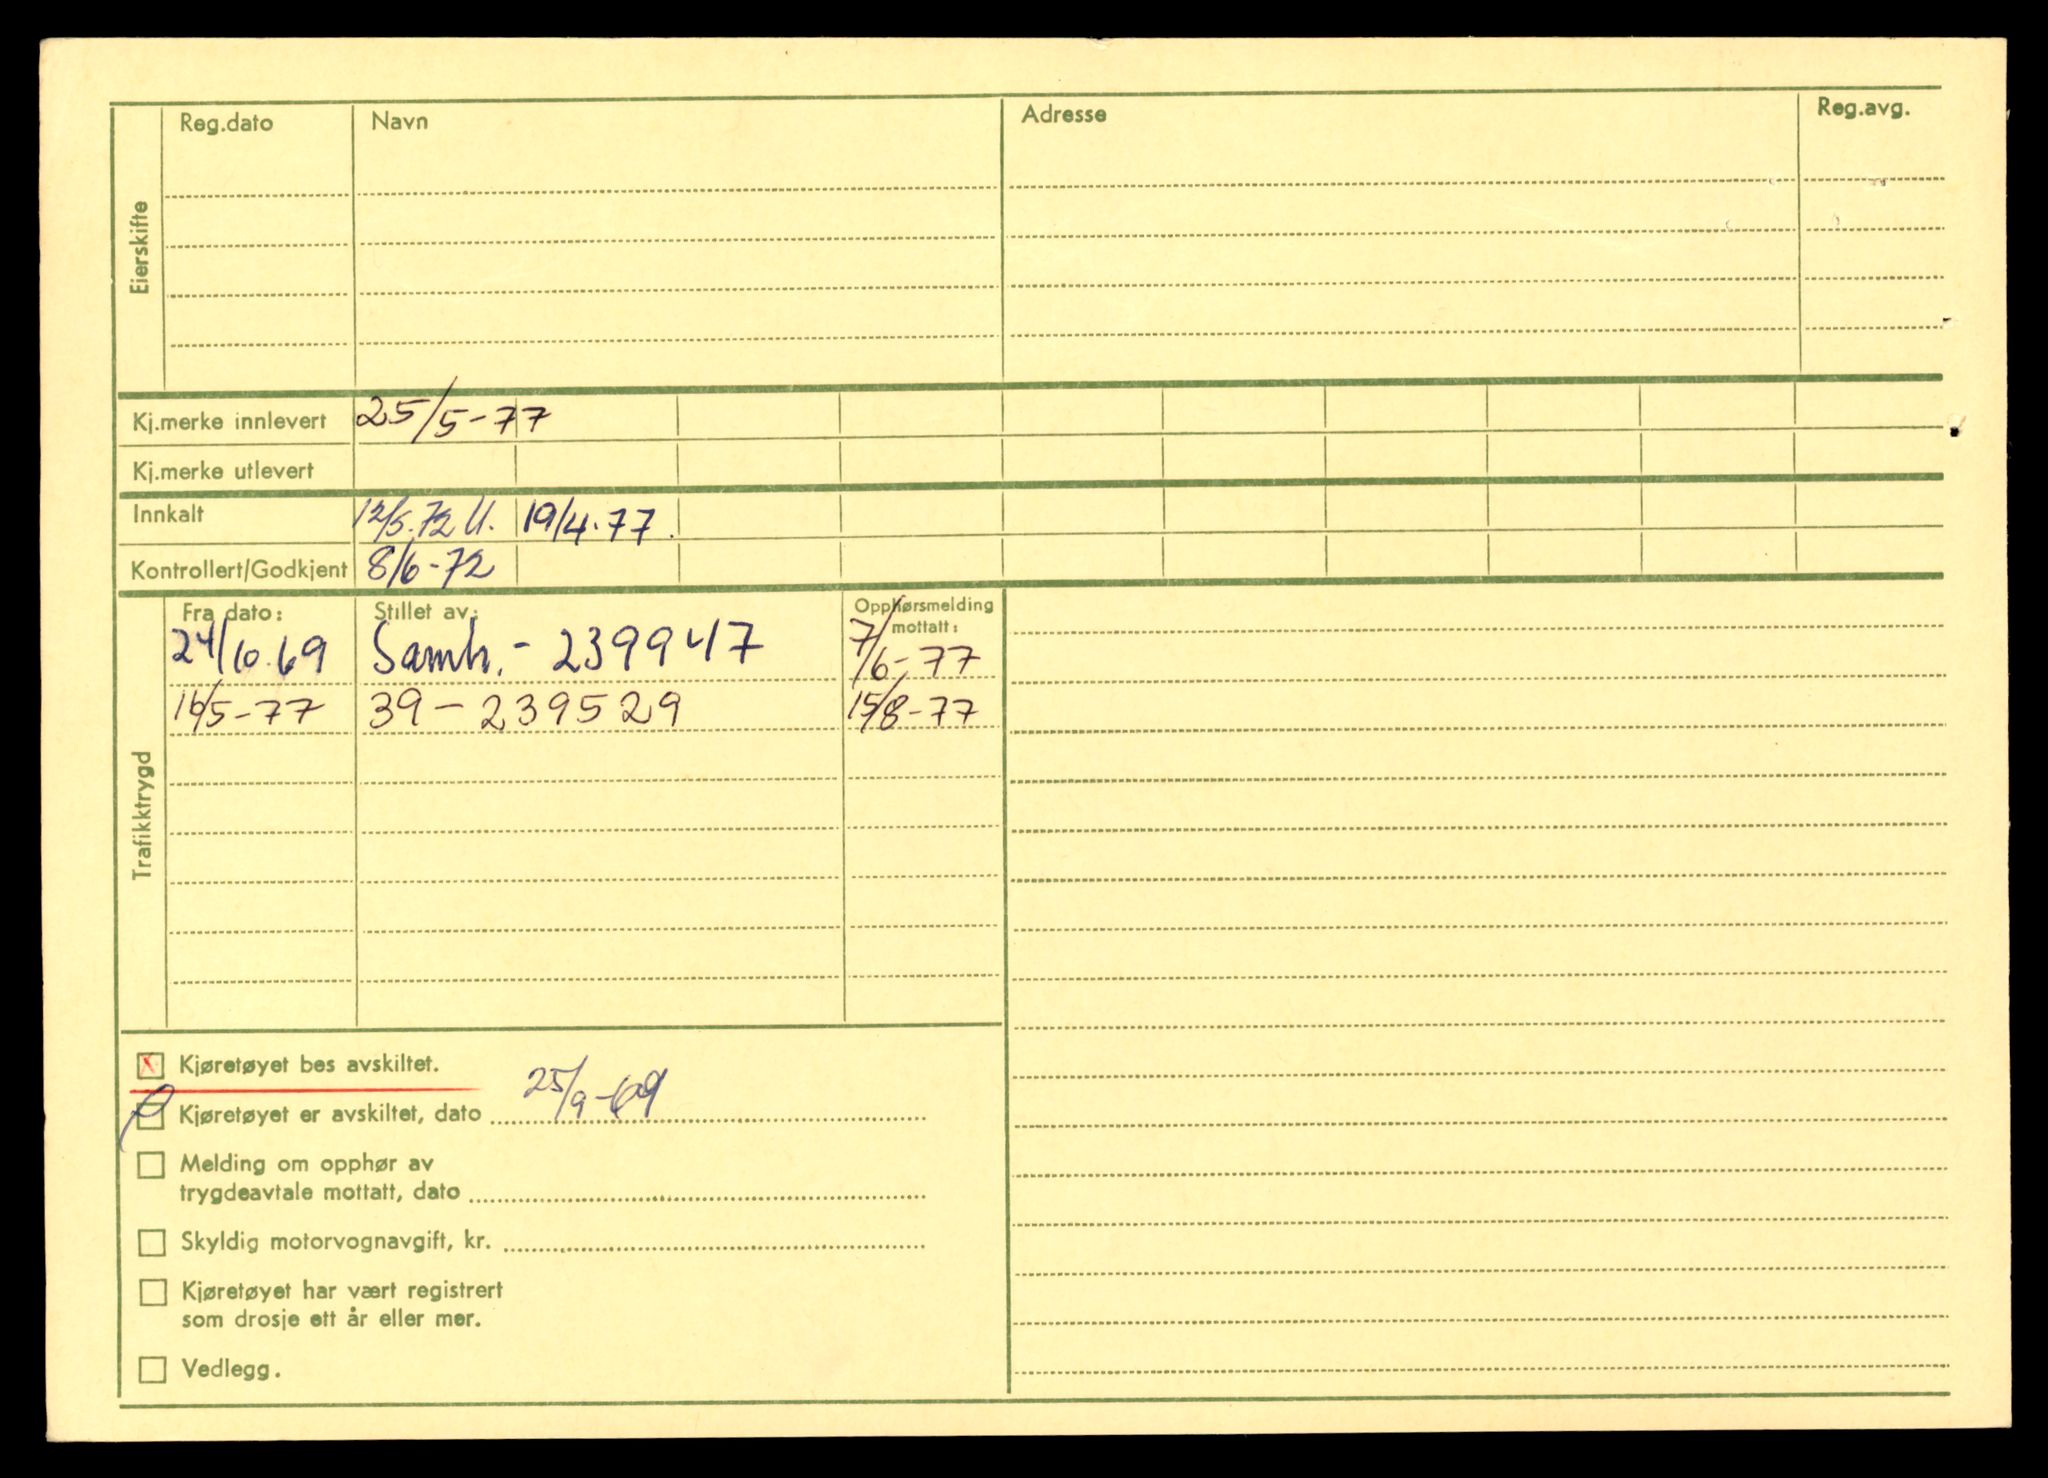 Eierskifte
Reg.dato Navn Adresse Reg.avg.
Kj.merke innlevert 25/5-77
Kj.merke utlevert
Innkalt 12/5.72 U. 19/4.77.
Kontrollert/Godkjent 8/6-72
Trafikktrygd
Fra dato: Stillet av: Opphørsmelding mottatt:
24/10.69 Samh.- 239947 7/6-77
16/5-77 39-239529 15/8-77
X Kjøretøyet bes avskiltet.
Kjøretøyet er avskiltet, dato 25/9-69
Melding om opphør av
trygdeavtale mottatt, dato
Skyldig motorvognavgift, kr.
Kjøretøyet har vært registrert
som drosje ett år eller mer.
Vedlegg.